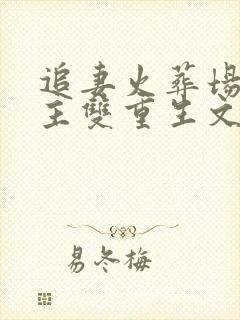 追妻火葬場
主雙重生文
易冬梅